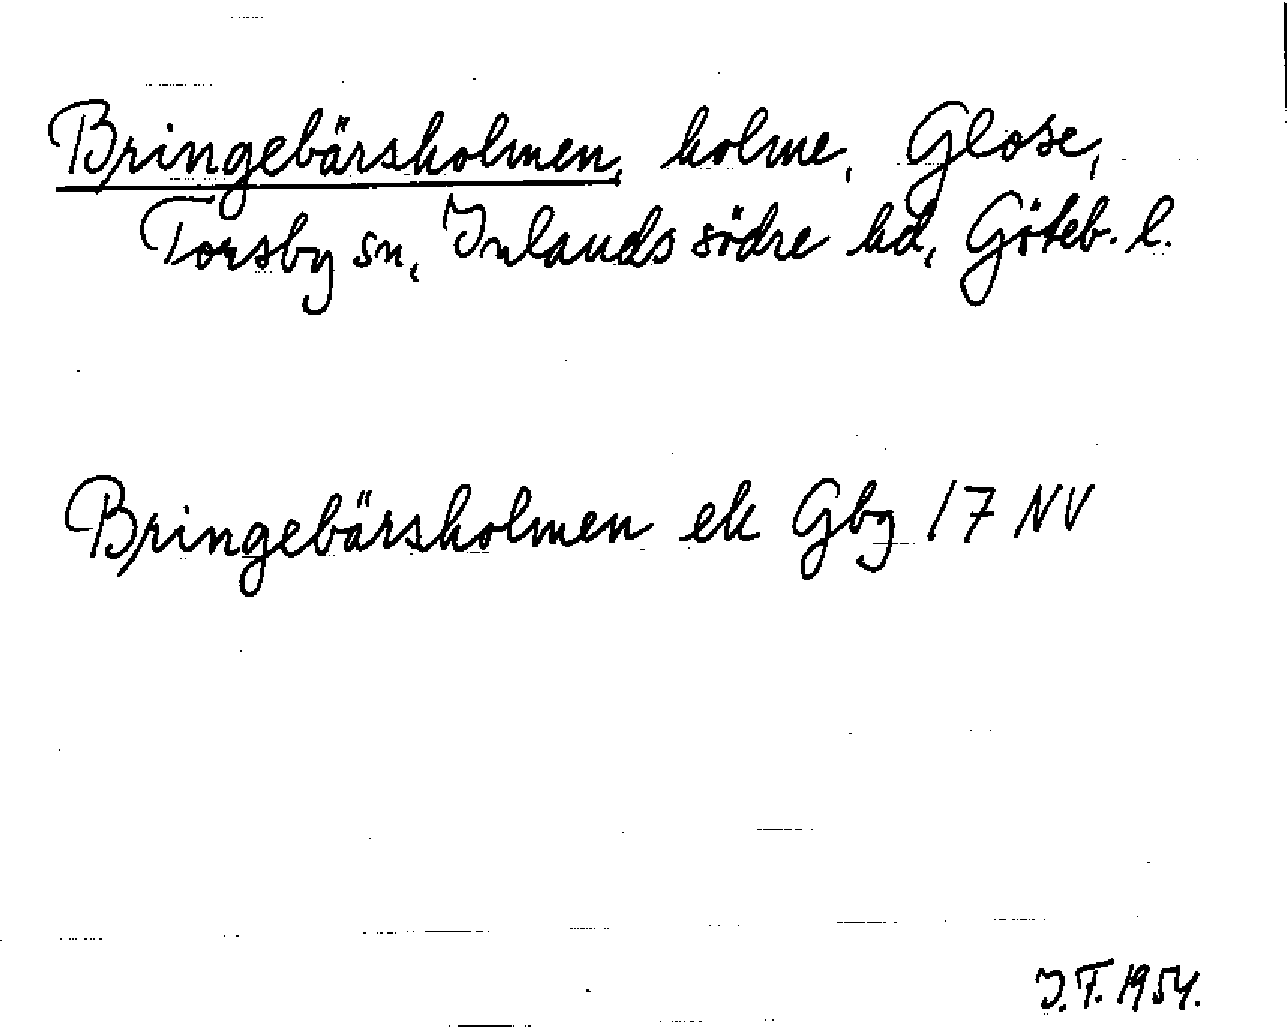 Bringebärsholmen, holme, Glose,
Torsby sn, Inlands södre hd, Göteb. l.
Bringebärsholmen ek Gbg 17 NV
J.T. 1954.